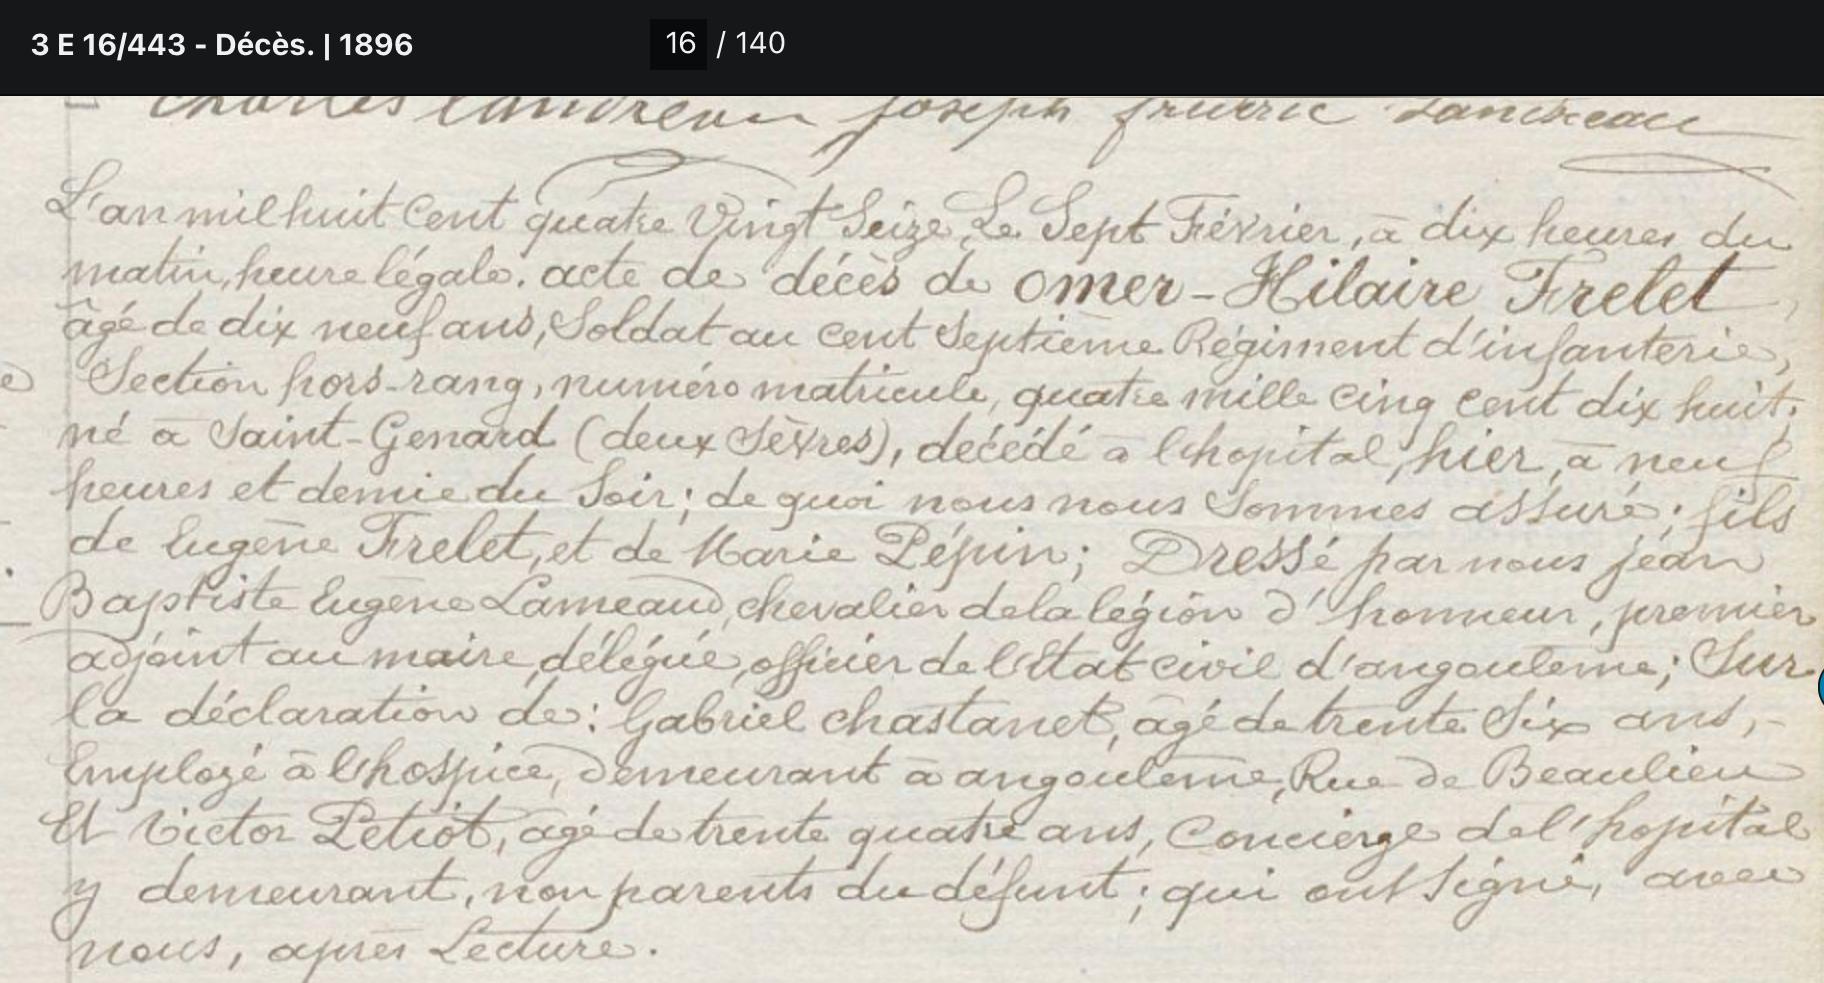 3 E 16/443 - Décès. | 1896 16 / 140
Charles Landreau Joseph Landreau
L'an mil huit Cent quatre Vingt Seize, Le Sept Février, à dix heures du
matin, heure légale. acte de décès de Omer-Hilaire Frelet,
âgé de dix neuf ans, Soldat au cent Septième Régiment d'infanterie,
Section hors-rang, numéro matricule, quatre mille cinq cent dix huit;
né à Saint-Genard (deux Sèvres), décédé à l'hopital, hier, à neuf
heures et demie du Soir; de quoi nous nous Sommes assuré; fils
de Eugène Frelet, et de Marie Pépin; Dressé par nous jean
Baptiste Eugène Lameaud, chevalier de la légion d'honneur, premier
adjoint au maire, délégué, officier de l'Etat civil d'angouleme; Sur
la déclaration de: Gabriel chastanet, agé de trente Six ans,-
Employé à l'hospice, demeurant à angouleme, Rue de Beaulieu
Et Victor Petiot, agé de trente quatre ans, Concierge de l'hopital
y demeurant, non parents du défunt; qui ont Signé, avec
nous, après Lecture.